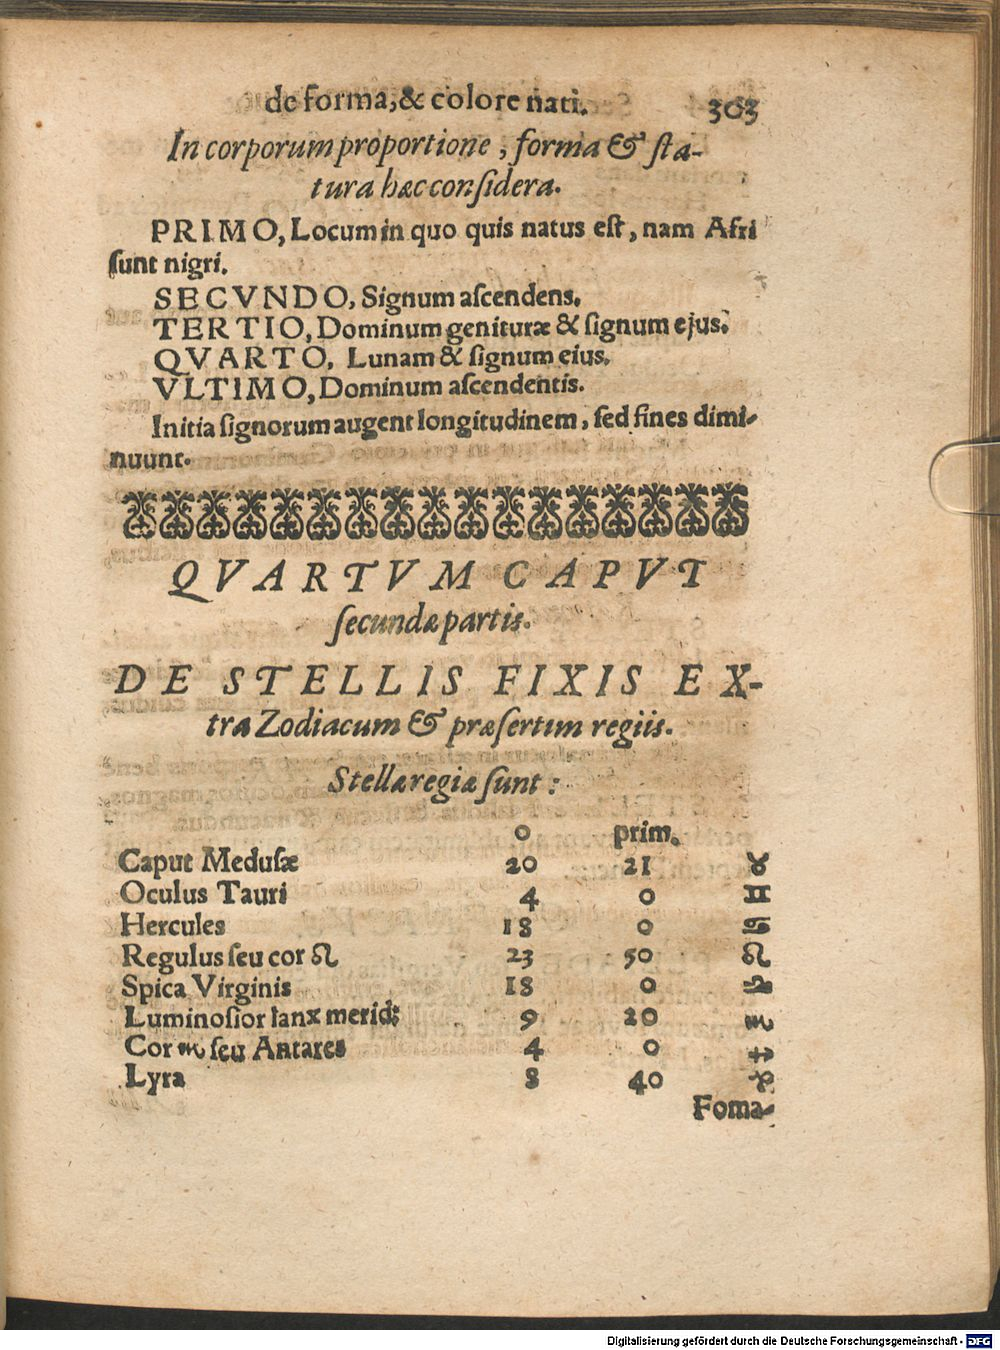 de forma, & colore nati. 303
In corporum proportione, forma & sta-
tura hæc considera.
PRIMO, Locum in quo quis natus est, nam Afri
sunt nigri.
SECVNDO, Signum ascendens.
TERTIO, Dominum genituræ & signum ejus.
QVARTO, Lunam & signum eius.
VLTIMO, Dominum ascendentis.
Initia signorum augent longitudinem, sed fines dimi-
nuunt.
QVARTVM CAPVT
secundæ partis.
DE STELLIS FIXIS EX-
tra Zodiacum & præsertim regiis.
Stellæ regiæ sunt:
0 prim.
Caput Medusæ 20 21 ♉
Oculus Tauri 4 0 ♊
Hercules 18 0 ♋
Regulus seu cor ♌ 23 50 ♌
Spica Virginis 18 0
Luminosior lanx merid: 9 20 ♏
Cor ♏ seu Antares 4 0 ♐
Lyra 8 40 ♑
Foma-
Digitalisierung gefördert durch die Deutsche Forschungsgemeinschaft - DFG